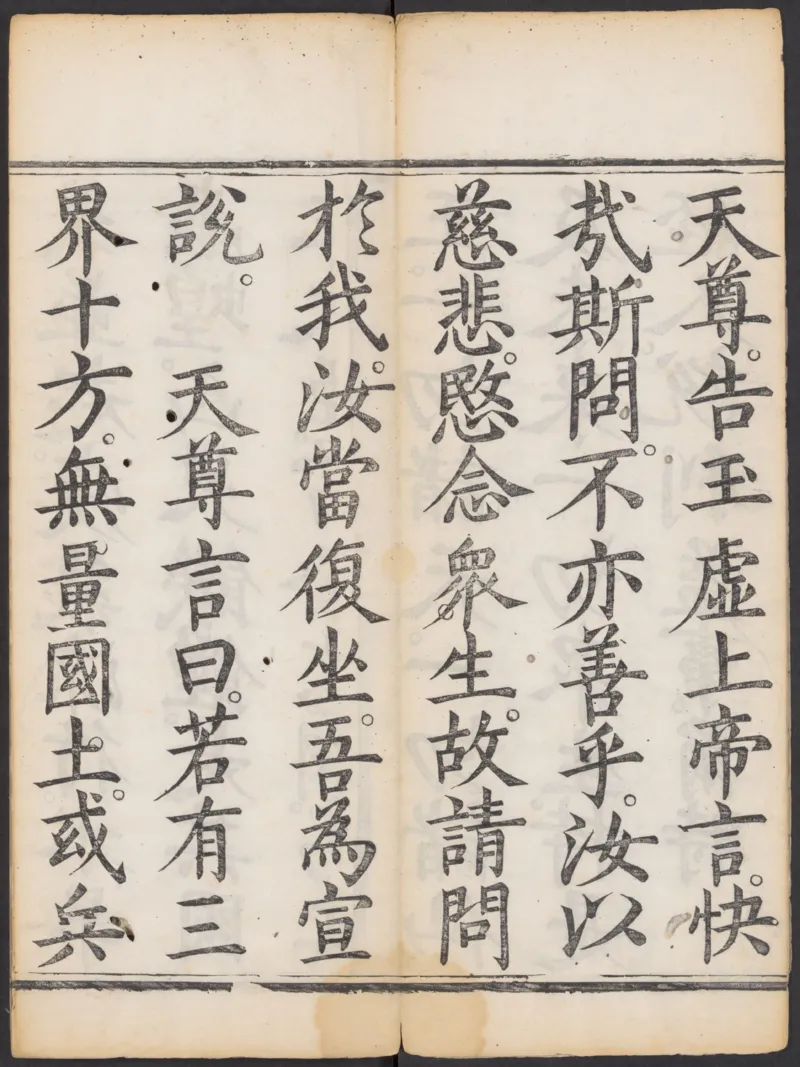 天尊。告玉虛上帝言。快
㢤斯問。不亦善乎。汝以
慈悲。愍念衆生。故請問
於我。汝當復坐。吾為宣
說。　天尊言曰。若有三
界十方。無量國土。或兵